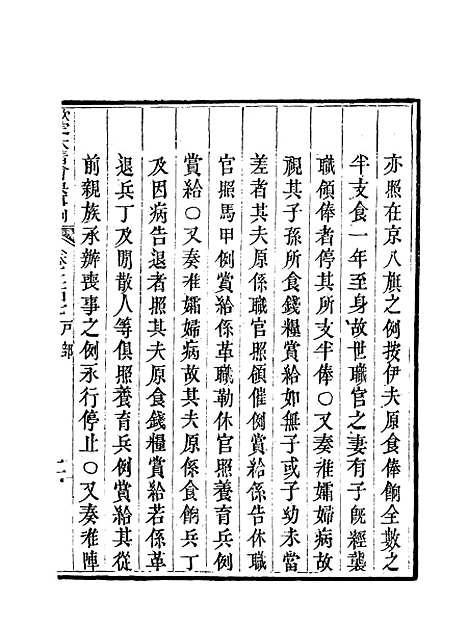 亦照在京八旗之例按伊夫原食俸餉全數之
半支食一年至身故世職官之妻有子旣經襲
職領俸者停其所支半俸○又奏准孀婦病故
視其子孫所食錢糧賞給如無子或子幼未當
差者其夫原係職官照領催例賞給係告休職
官照馬甲例賞給係革職勒休官照養育兵例
賞給○又奏准孀婦病故其夫原係食餉兵丁
及因病告退者照其夫原食錢糧賞給若係革
退兵丁及閒散人等俱照養育兵例賞給其從
前親族承辦喪事之例永行停止○又奏准陣
欽定大清會典事例
戶部